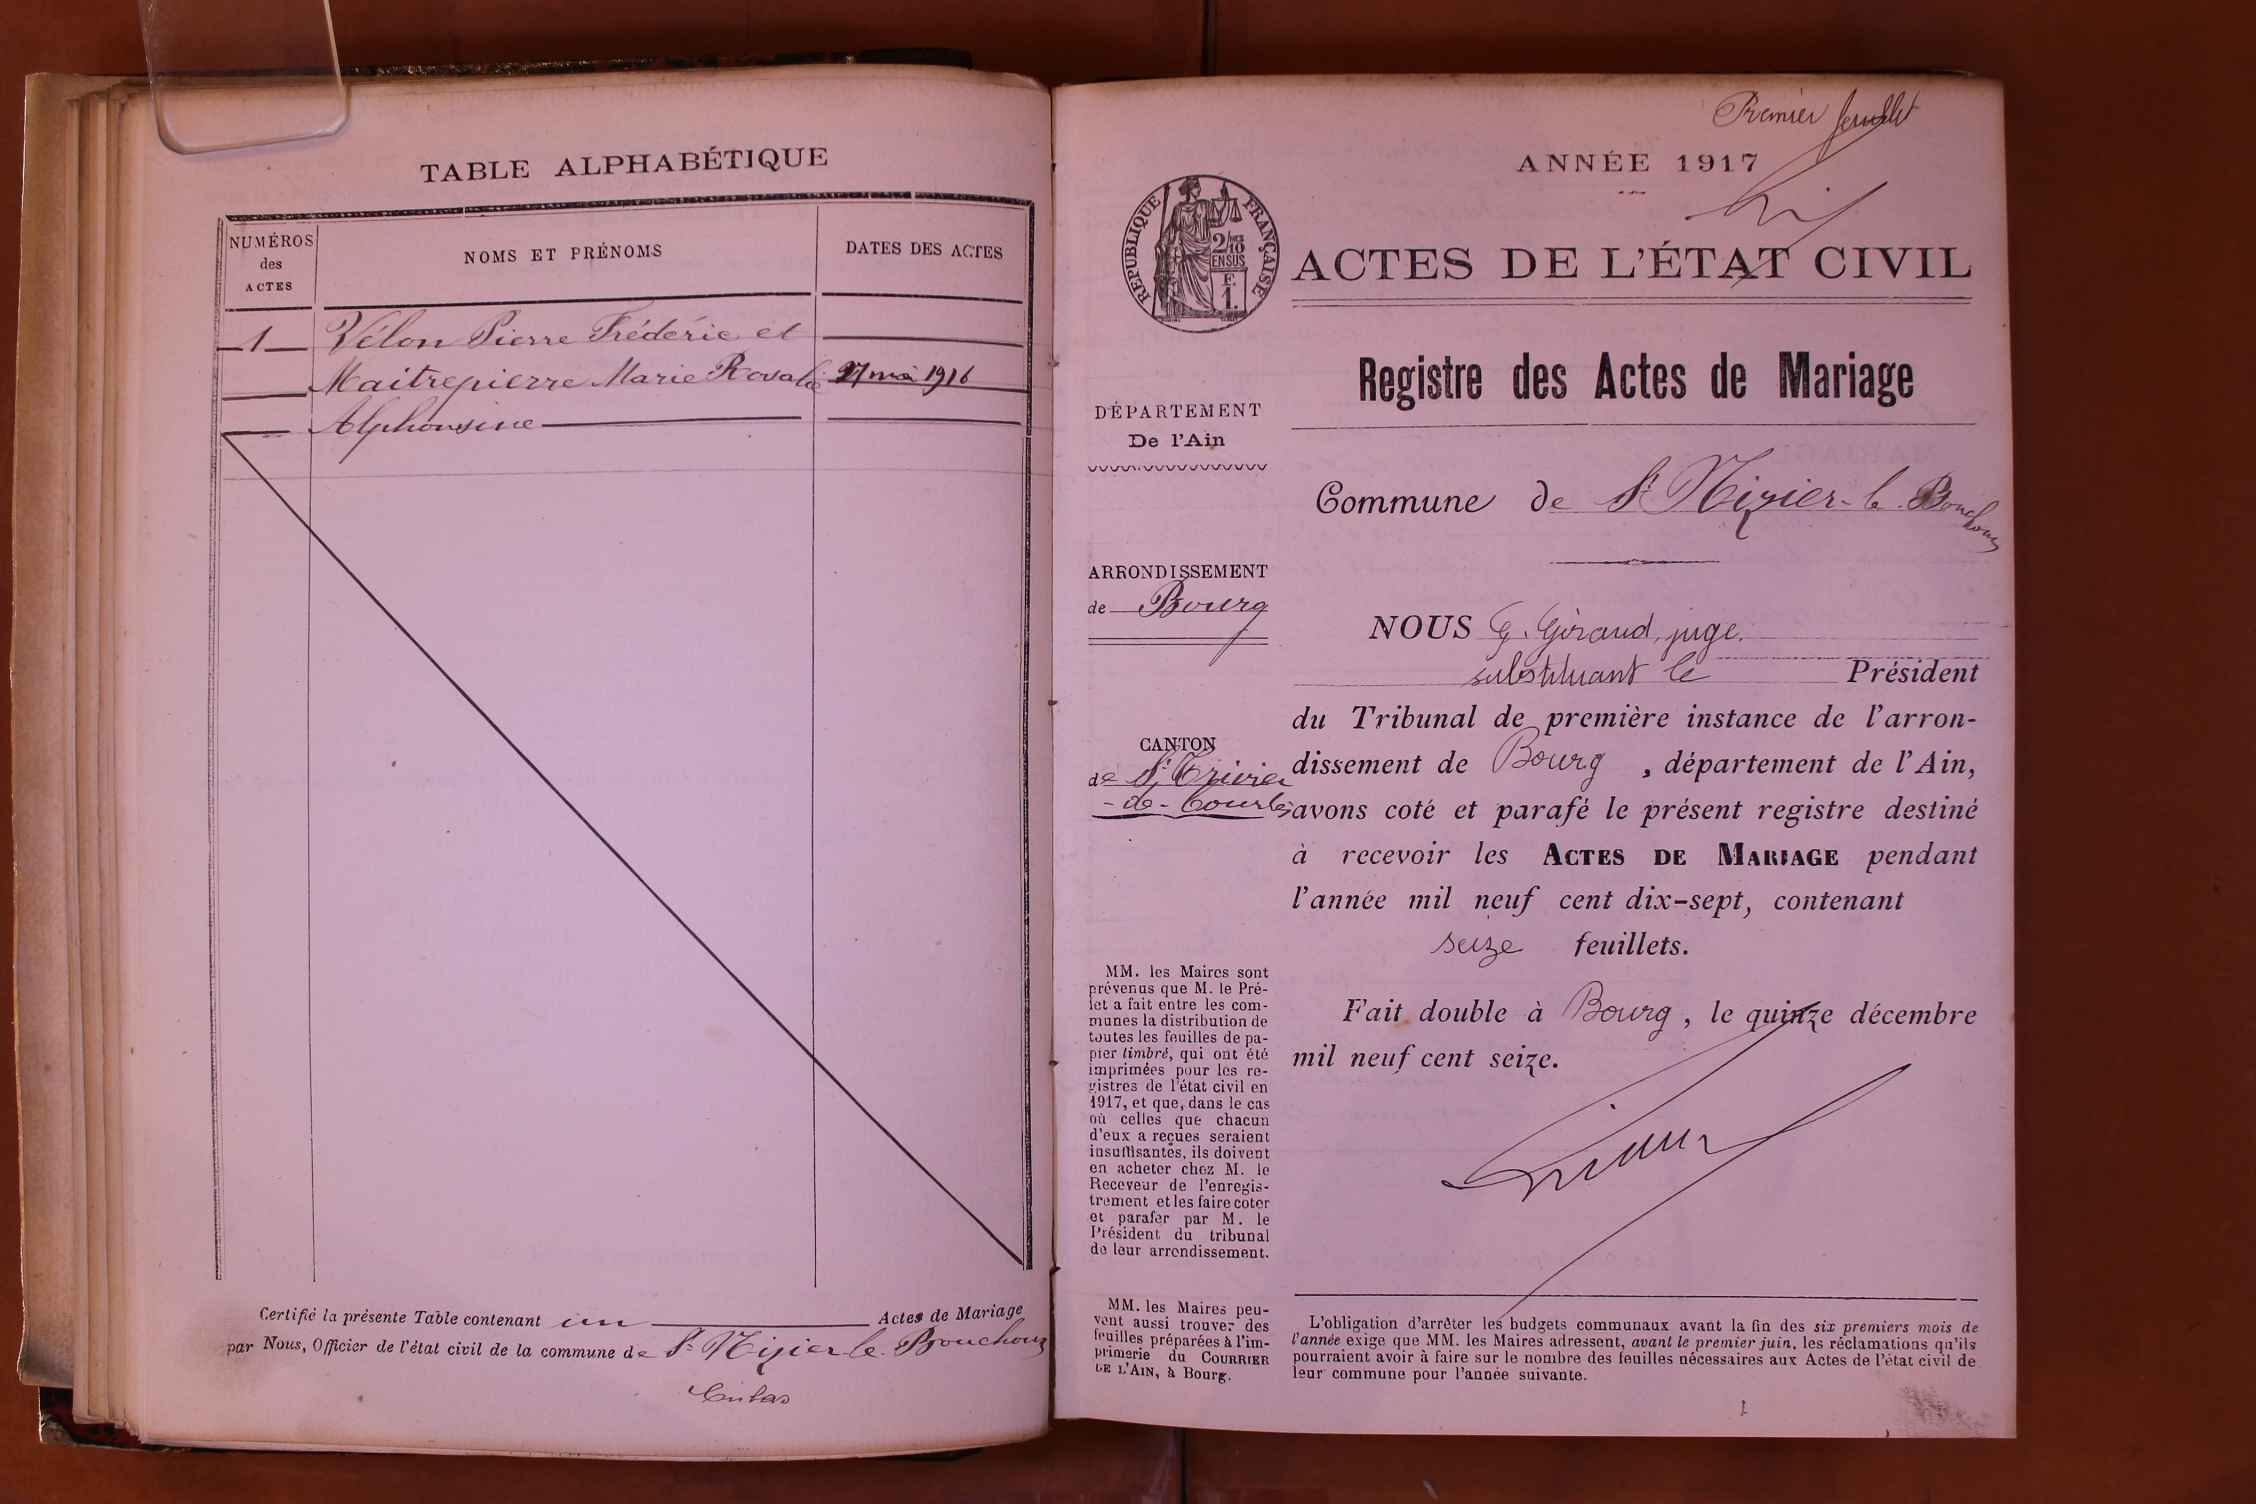 TABLE ALPHABÉTIQUE
NUMÉROS
des
ACTES
NOMS ET PRÉNOMS
DATES DES ACTES
1 Vélon Pierre Fréderic et
Maitrepierre Marie Rosalie 27 mai 1916
Alphonsine
Certifié la présente Table contenant un Actes de Mariage
par Nous, Officier de l'état civil de la commune de St Nizier-le-Bouchoux
Premier feuillet
ANNÉE 1917
RÉPUBLIQUE FRANÇAISE
2/10
EN SUS
F.
1.
ACTES DE L'ÉTAT CIVIL
Registre des Actes de Mariage
DÉPARTEMENT
De l'Ain
Commune de St Nizier-le-Bouchoux
ARRONDISSEMENT
de Bourg
CANTON
de St Trivier
-de-Courtes
MM. les Maires sont
prévenus que M. le Pré-
fet a fait entre les com-
munes la distribution de
toutes les feuilles de pa-
pier timbré, qui ont été
imprimées pour les re-
gistres de l'état civil en
1917, et que, dans le cas
où celles que chacun
d'eux a reçues seraient
insuffisantes, ils doivent
en acheter chez M. le
Receveur de l'enregis-
trement et les faire coter
et parafer par M. le
Président du tribunal
de leur arrondissement.
MM. les Maires peu-
vent aussi trouver des
feuilles préparées à l'im-
primerie du COURRIER
DE L'AIN, à Bourg.
NOUS G. Giraud, juge
substituant le Président
du Tribunal de première instance de l'arron-
dissement de Bourg, département de l'Ain,
avons coté et parafé le présent registre destiné
à recevoir les ACTES DE MARIAGE pendant
l'année mil neuf cent dix-sept, contenant
seize feuillets.
Fait double à Bourg, le quinze décembre
mil neuf cent seize.
L'obligation d'arrêter les budgets communaux avant la fin des six premiers mois de
l'année exige que MM. les Maires adressent, avant le premier juin, les réclamations qu'ils
pourraient avoir à faire sur le nombre des feuilles nécessaires aux Actes de l'état civil de
leur commune pour l'année suivante.
1